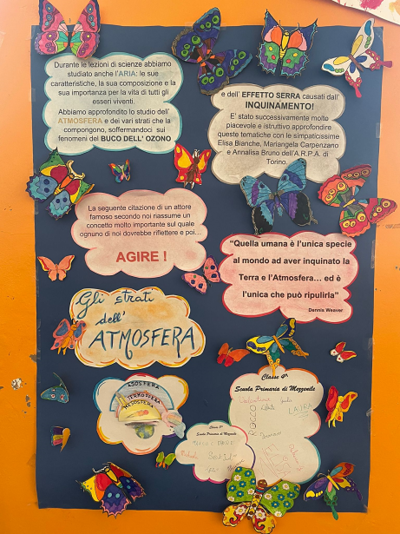 Durante le lezioni di scienze abbiamo
studiato anche l'ARIA: le sue
caratteristiche, la sua composizione e la
sua importanza per la vita di tutti gli
esseri viventi.
Abbiamo approfondito lo studio dell'
ATMOSFERA e dei vari strati che la
compongono, soffermandoci sui
fenomeni del BUCO DELL' OZONO
e dell' EFFETTO SERRA causati dall'
INQUINAMENTO!
E' stato successivamente molto
piacevole e istruttivo approfondire
queste tematiche con le simpaticissime
Elisa Bianche, Mariangela Carpenzano
e Annalisa Bruno dell'A.R.P.A. di
Torino.
La seguente citazione di un attore
famoso secondo noi riassume un
concetto molto importante sul quale
ognuno di noi dovrebbe riflettere e poi...
AGIRE !
"Quella umana è l'unica specie
al mondo ad aver inquinato la
Terra e l'Atmosfera... ed è
l'unica che può ripulirla"
Dennis Weaver
Gli strati
dell'
ATMOSFERA
ESOSFERA
TERMOSFERA
MESOSFERA
Classe 4ª
Scuola Primaria di Mezzenile
ROCCO
LAURA
Scuola Primaria di Mezzenile